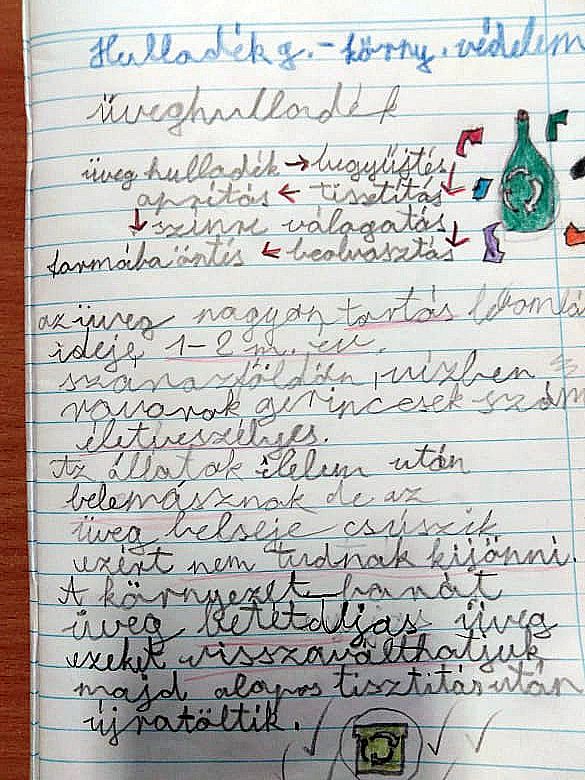 Hulladék g. - körny. védelem
üveghulladék
üveg hulladék → begyűjtés
aprítás ← tisztítás
szinre válogatás
formába öntés ← beolvasztás
az üveg nagyon tartós lebomlás
ideje 1-2 m. év.
szárazföldön, vizben
rovarok gerincesek szám
életveszélyes.
Az állatok élelem után
belemásznak de az
üveg belseje csúszik
ezért nem tudnak kijönni.
A környezet barát
üveg betétdíjas üveg
ezeket visszaválthatjuk
majd alapos tisztitás után
újratöltik.